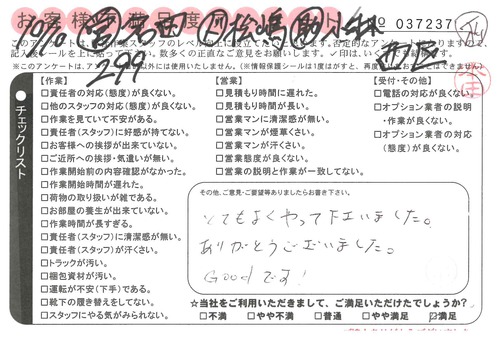 No 037237
※このアンケートは、
以外には使用いたしません。(※情報保護シールは1度はがすと、再度
299
チェックリスト
【作業】
□責任者の対応(態度)が良くない。
□他のスタッフの対応(態度)が良くない。
□作業を見ていて不安がある。
□責任者(スタッフ)に好感が持てない。
□お客様への挨拶が出来ていない。
□ご近所への挨拶・気遣いが無い。
□作業開始前の内容確認がなかった。
□作業開始時間が遅れた。
□荷物の取り扱いが雑である。
□お部屋の養生が出来ていない。
□作業時間が長すぎる。
□責任者(スタッフ)に清潔感が無い。
□責任者(スタッフ)が汗くさい。
□トラックが汚い。
□梱包資材が汚い。
□運転が不安(下手)である。
□靴下の履き替えをしてない。
□スタッフにやる気がみられない。
【営業】
□見積もり時間に遅れた。
□見積もり時間が長い。
□営業マンに清潔感が無い。
□営業マンが煙草くさい。
□営業マンが汗くさい。
□営業態度が良くない。
□営業の説明と作業が一致してない。
【受付・その他】
□電話の対応が良くない。
□オプション業者の説明
・作業が良くない。
□オプション業者の対応
(態度)が良くない。
その他、ご意見・ご要望等ありましたらお書き下さい。
とてもよくやって下さいました。
ありがとうございました。
Goodです!
☆当社をご利用いただきまして、ご満足いただけたでしょうか?
□不満 □やや不満 □普通 □やや満足 ☑満足